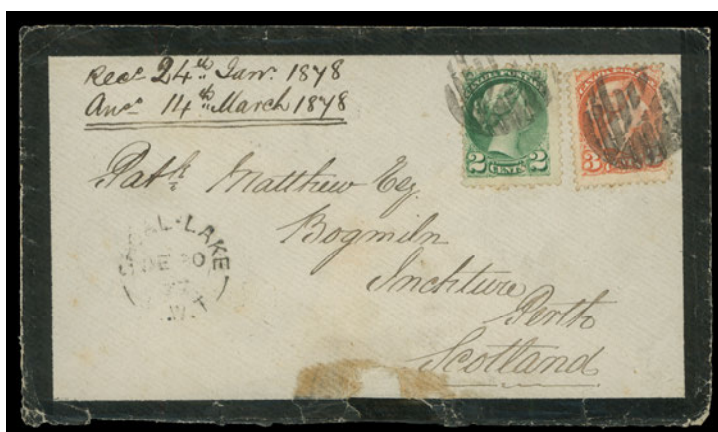 Recd 24th Jany. 1878
Ansd 14th March 1878
CANADA POSTAGE
2 CENTS 2
CANADA POSTAGE
3
Patk Matthew Esq.
Bogmiln
Inchture
Perth
Scotland
LAKE
W.T